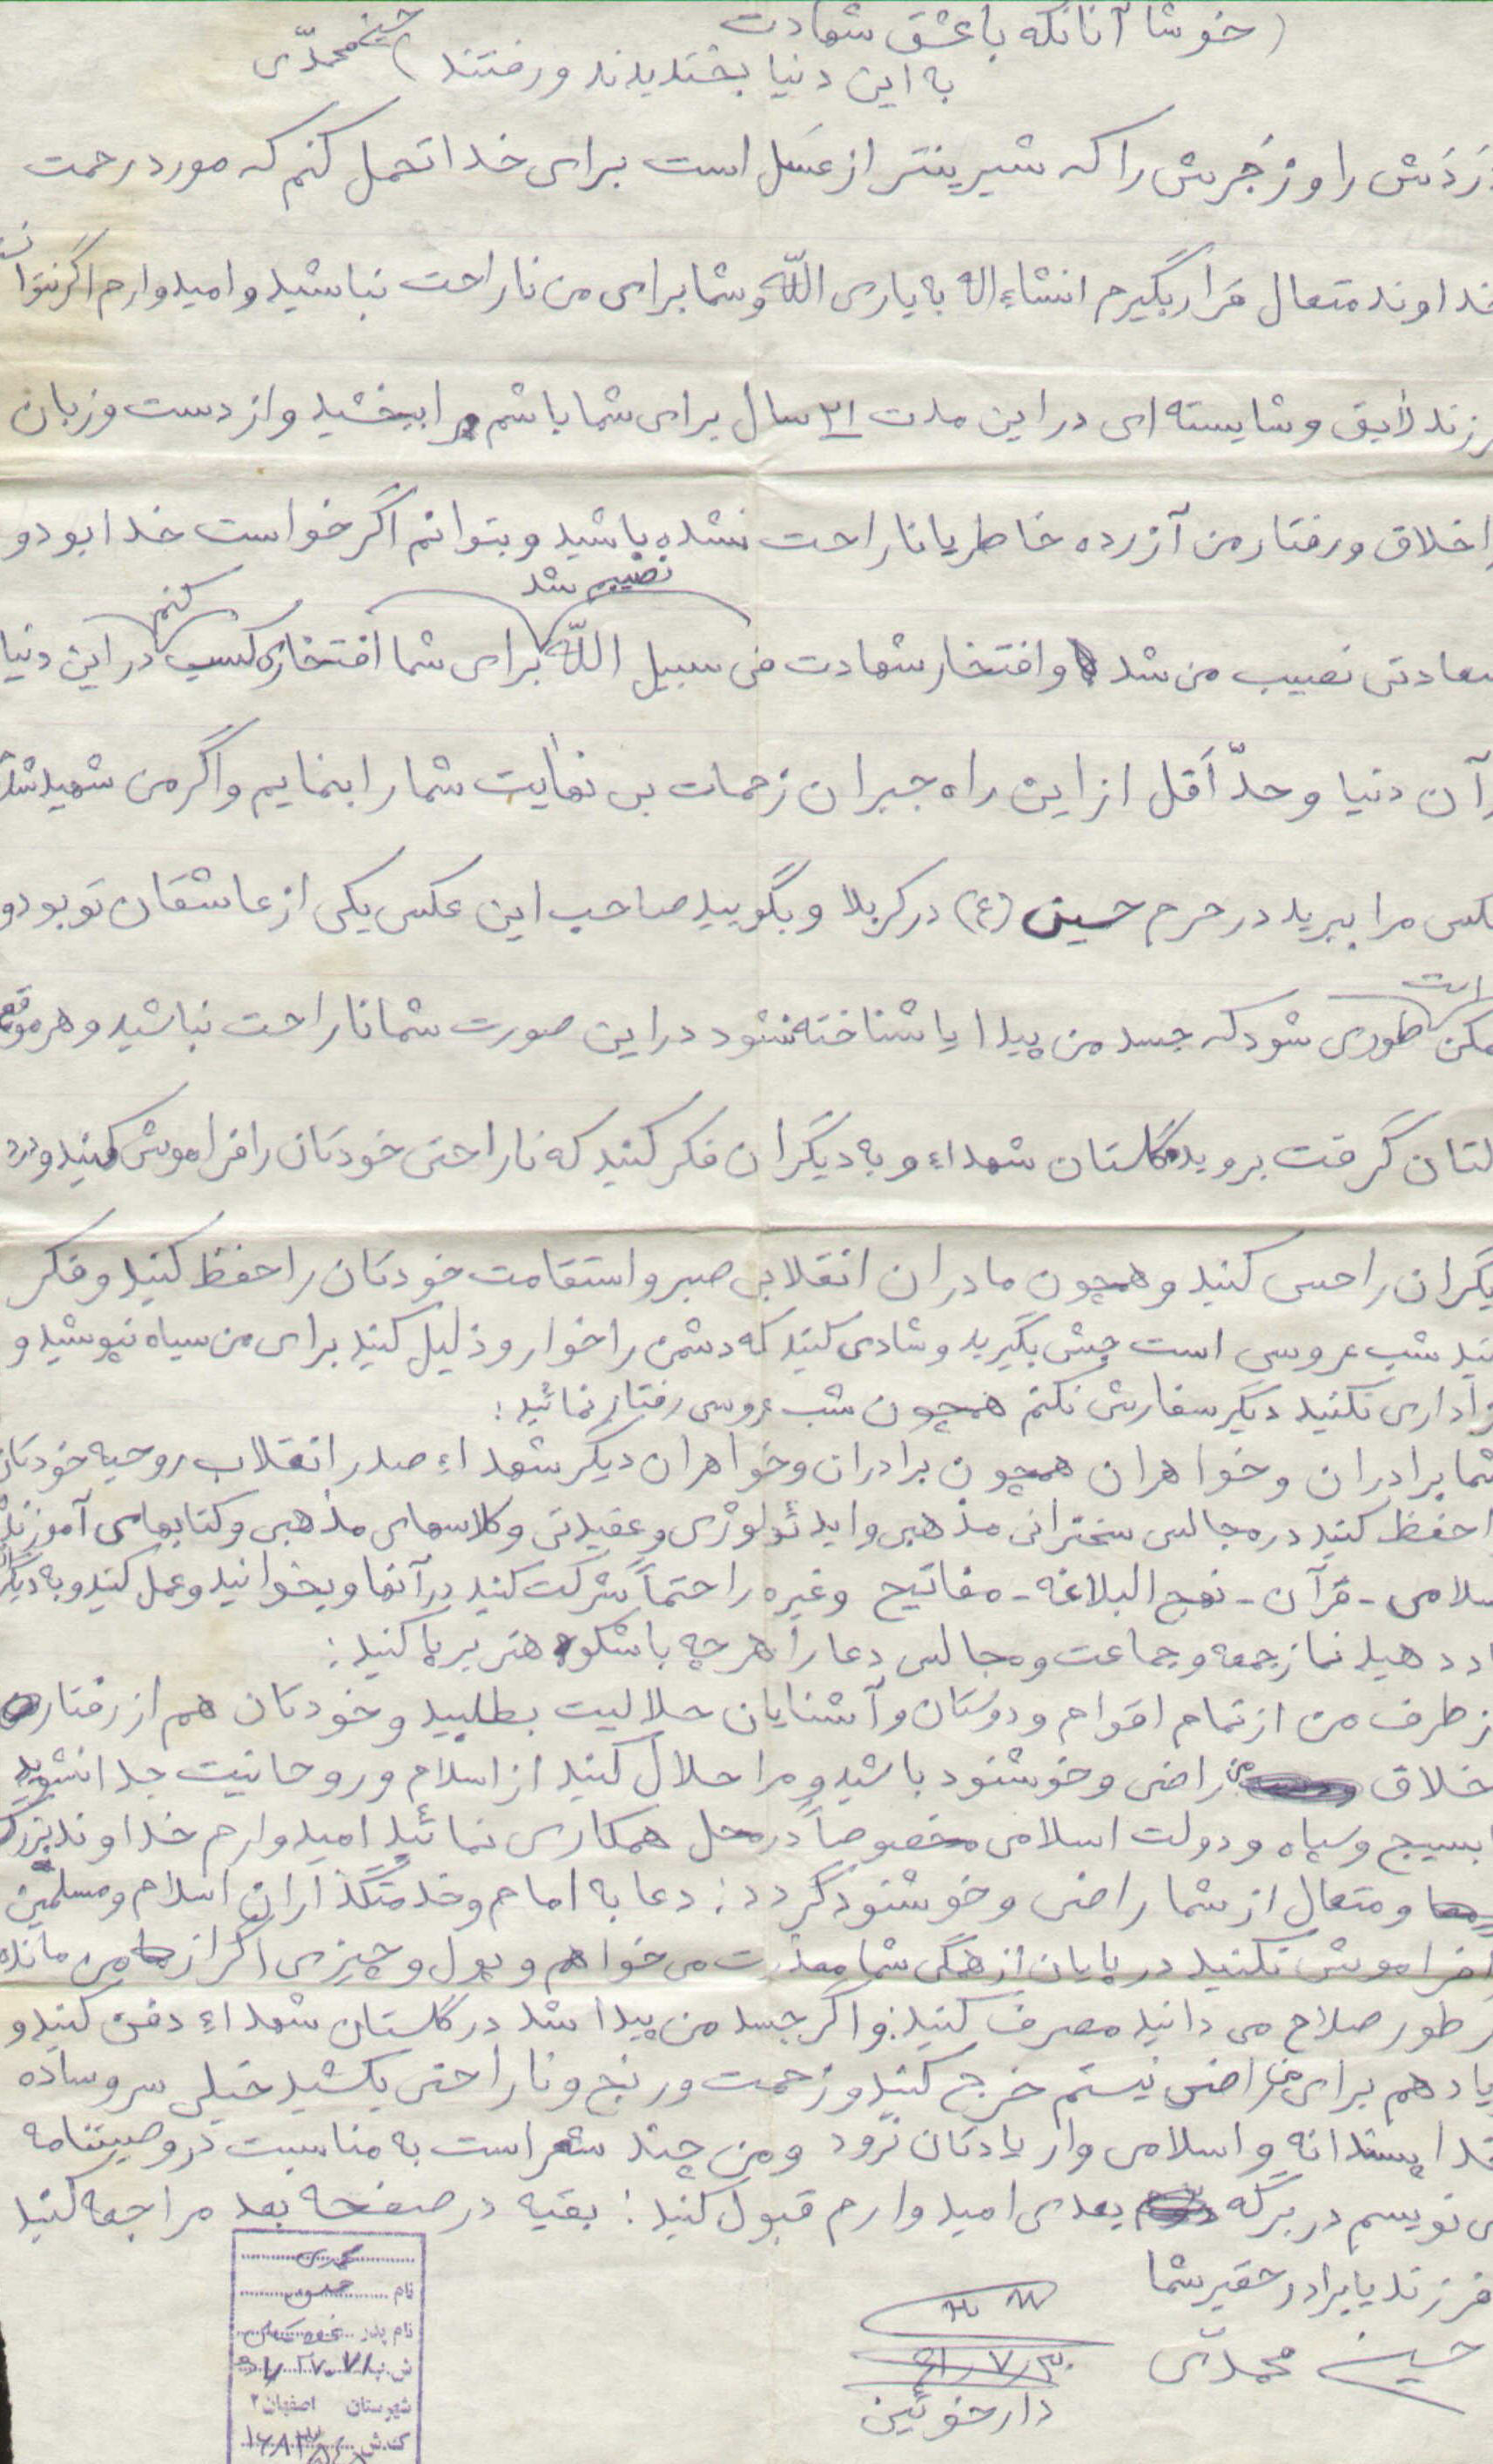 (خوشا آنانکه با عشق شهادت
به این دنیا بخندیدند و رفتند) حسین محمدّی
دَردَش را و زَجرش را که شیرینتر از عَسَل است برای خدا تحمل کنم که مورد رحمت
خداوند متعال قرار بگیرم انشاءاله به یاری اللّه و شما برای من ناراحت نباشید و امیدوارم اگر نتوانستم
فرزند لایق و شایسته ای در این مدت ۲۱ سال برای شما باشم مرا ببخشید و از دست و زبان
و اخلاق و رفتار من آزرده خاطر یا ناراحت نشده باشید و بتوانم اگر خواست خدا بود و
سعادتی نصیب من شد و افتخار شهادت فی سبیل اللّه نصیبم شد برای شما افتخاری کسب کنم در این دنیا
در آن دنیا و حدّ اَقل از این راه جبران زحمات بی نهایت شما را بنمایم و اگر من شهید شدم
عکس مرا ببرید در حرم حسین (ع) در کربلا و بگویید صاحب این عکس یکی از عاشقان تو بود و
ممکن است طوری شود که جسد من پیدا یا شناخته نشود در این صورت شما ناراحت نباشید و هر موقع
دلتان گرفت بروید گلستان شهداء و به دیگران فکر کنید که ناراحتی خودتان را فراموش کنید و درد
دیگران را حس کنید و همچون مادران انقلابی صبر و استقامت خودتان را حفظ کنید و فکر
کنید شب عروسی است جشن بگیرید و شادی کنید که دشمن را خوار و ذلیل کنید برای من سیاه نپوشید و
عزاداری نکنید دیگر سفارش نکنم همچون شب عروسی رفتار نمائید:
شما برادران و خواهران همچون برادران و خواهران دیگر شهداء صدر انقلاب روحیه خودتان
را حفظ کنید در مجالس سخنرانی مذهبی و ایدئولوژی و عقیدتی و کلاسهای مذهبی و کتابهای آموزنده
اسلامی - قرآن - نهج البلاغه - مفاتیح و غیره را حتماً شرکت کنید در آنها و بخوانید و عمل کنید و به دیگران
یاد دهید نماز جمعه و جماعت و مجالس دعا را هر چه باشکوه تر برپا کنید:
از طرف من از تمام اقوام و دوستان و آشنایان حلالیت بطلبید و خودتان هم از رفتار و
اخلاق من راضی و خوشنود باشید و مرا حلال کنید از اسلام و روحانیت جدا نشوید
با بسیج و سپاه و دولت اسلامی مخصوصاً در محل همکاری نمائید امیدوارم خداوند بزرگ
و متعال از شما راضی و خوشنود گردد: دعا به امام و خدمتگذاران اسلام و مسلمین
را فراموش نکنید در پایان از همگی شما معذرت می خواهم و پول و چیزی اگر از من مانده
هر طور صلاح می دانید مصرف کنید: و اگر جسد من پیدا شد در گلستان شهداء دفن کنید و
زیاد هم برای من راضی نیستم خرج کنید و زحمت و رنج و ناراحتی بکشید خیلی سر و ساده
خدا پسندانه و اسلامی وار یادتان نرود و من چند شعر است به مناسبت در وصیتنامه
می نویسم در برگه بعدی امیدوارم قبول کنید: بقیه در صفحه بعد مراجعه کنید
فرزند یا برادر حقیر شما
حسین محمدّی
۶۱/۷/۳۰
دارخوئین
محمدی
نام حسین
نام پدر
ش.پ
شهرستان اصفهان ۲
ک.ش